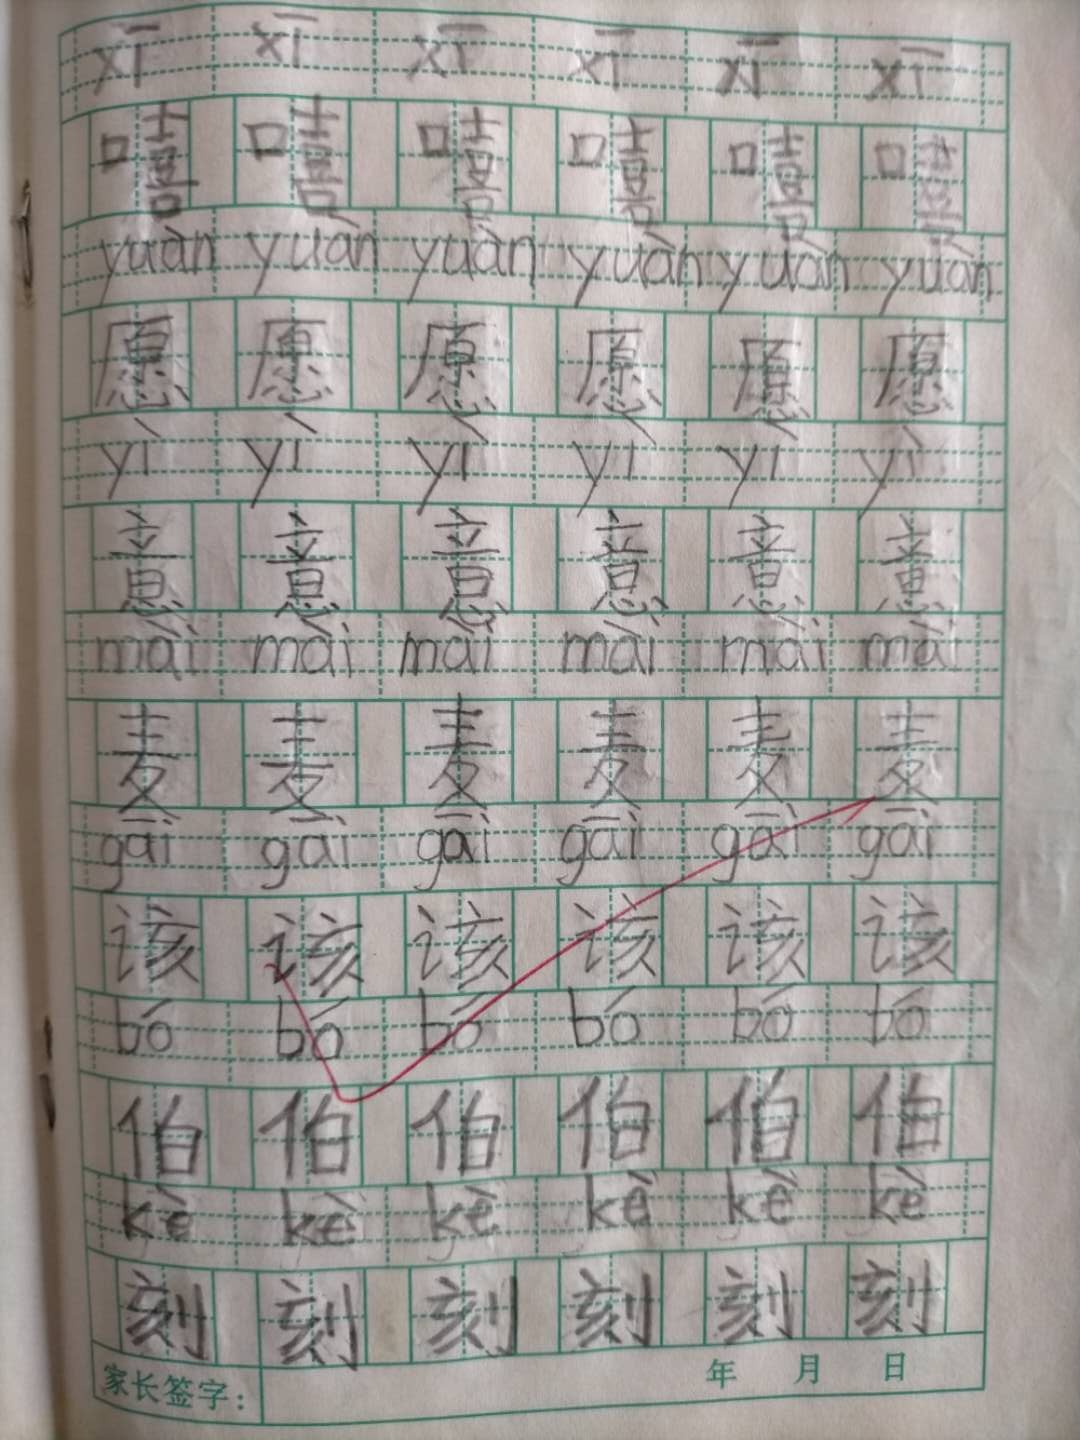 xī xī xī xī xī xī
嘻 嘻 嘻 嘻 嘻 嘻
yuàn yuàn yuàn yuàn yuàn yuàn
愿 愿 愿 愿 愿 愿
yì yì yì yì yì yì
意 意 意 意 意 意
mài mài mài mài mài mài
麦 麦 麦 麦 麦 麦
gāi gāi gāi gāi gāi gāi
该 该 该 该 该 该
bó bó bó bó bó bó
伯 伯 伯 伯 伯 伯
kè kè kè kè kè kè
刻 刻 刻 刻 刻 刻
家长签字： 年 月 日